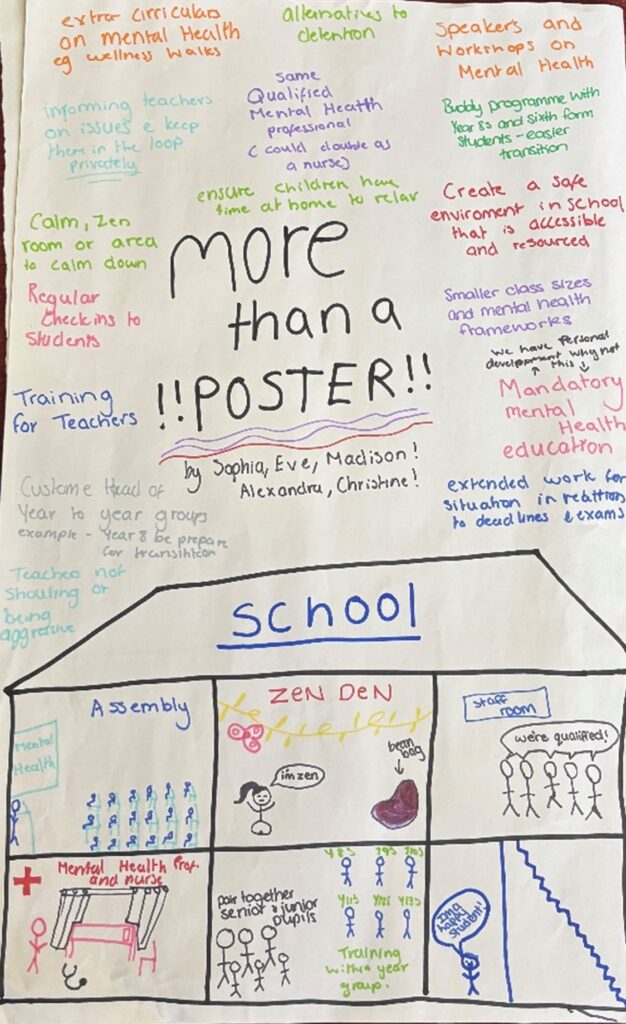 extra cirriculars
on mental Health
eg wellness walks
alternatives to
detention
Speakers and
Workshops on
Mental Health
informing teachers
on issues & keep
them in the loop
privately
Same
Qualified
Mental Health
professional
(could double as
a nurse)
Buddy programme with
Year 8s and sixth form
students - easier
transition
ensure children have
time at home to relax
Calm, Zen
room or area
to calm down
Create a safe
enviroment in school
that is accessible
and resourced
Regular
check ins to
Students
Smaller class sizes
and mental health
frameworks
Training
for Teachers
we have personal
development why not
this
Mandatory
mental
Health
education
more
than a
!!POSTER!!
by Sophia, Eve, Madison!
Alexandra, Christine!
Custome Head of
Year to year groups
example - Year 8 be prepare
for transihtion
extended work for
situation in relation
to deadlines & exams
Teachers not
shouting or
being
aggressive
SCHOOL
Assembly
Mental
Health
ZEN DEN
im zen
bean
bag
Staff
room
we're qualified!
Mental Health Prof.
and nurse
pair together
senior & junior
pupils
Y8s Y9s Y10s
Y11s Y12s Y13s
Training
within year
group.
Im a
happy
student!